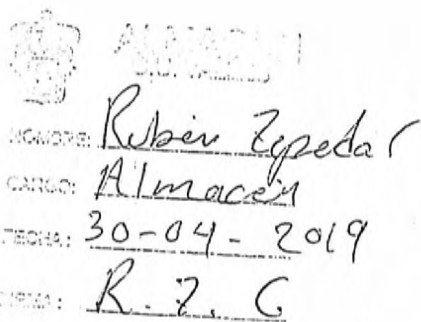 ALMACEN
NOMBRE: Ruben Zepeda C
CARGO: Almacen
FECHA: 30-04-2019
FIRMA: R. Z. C